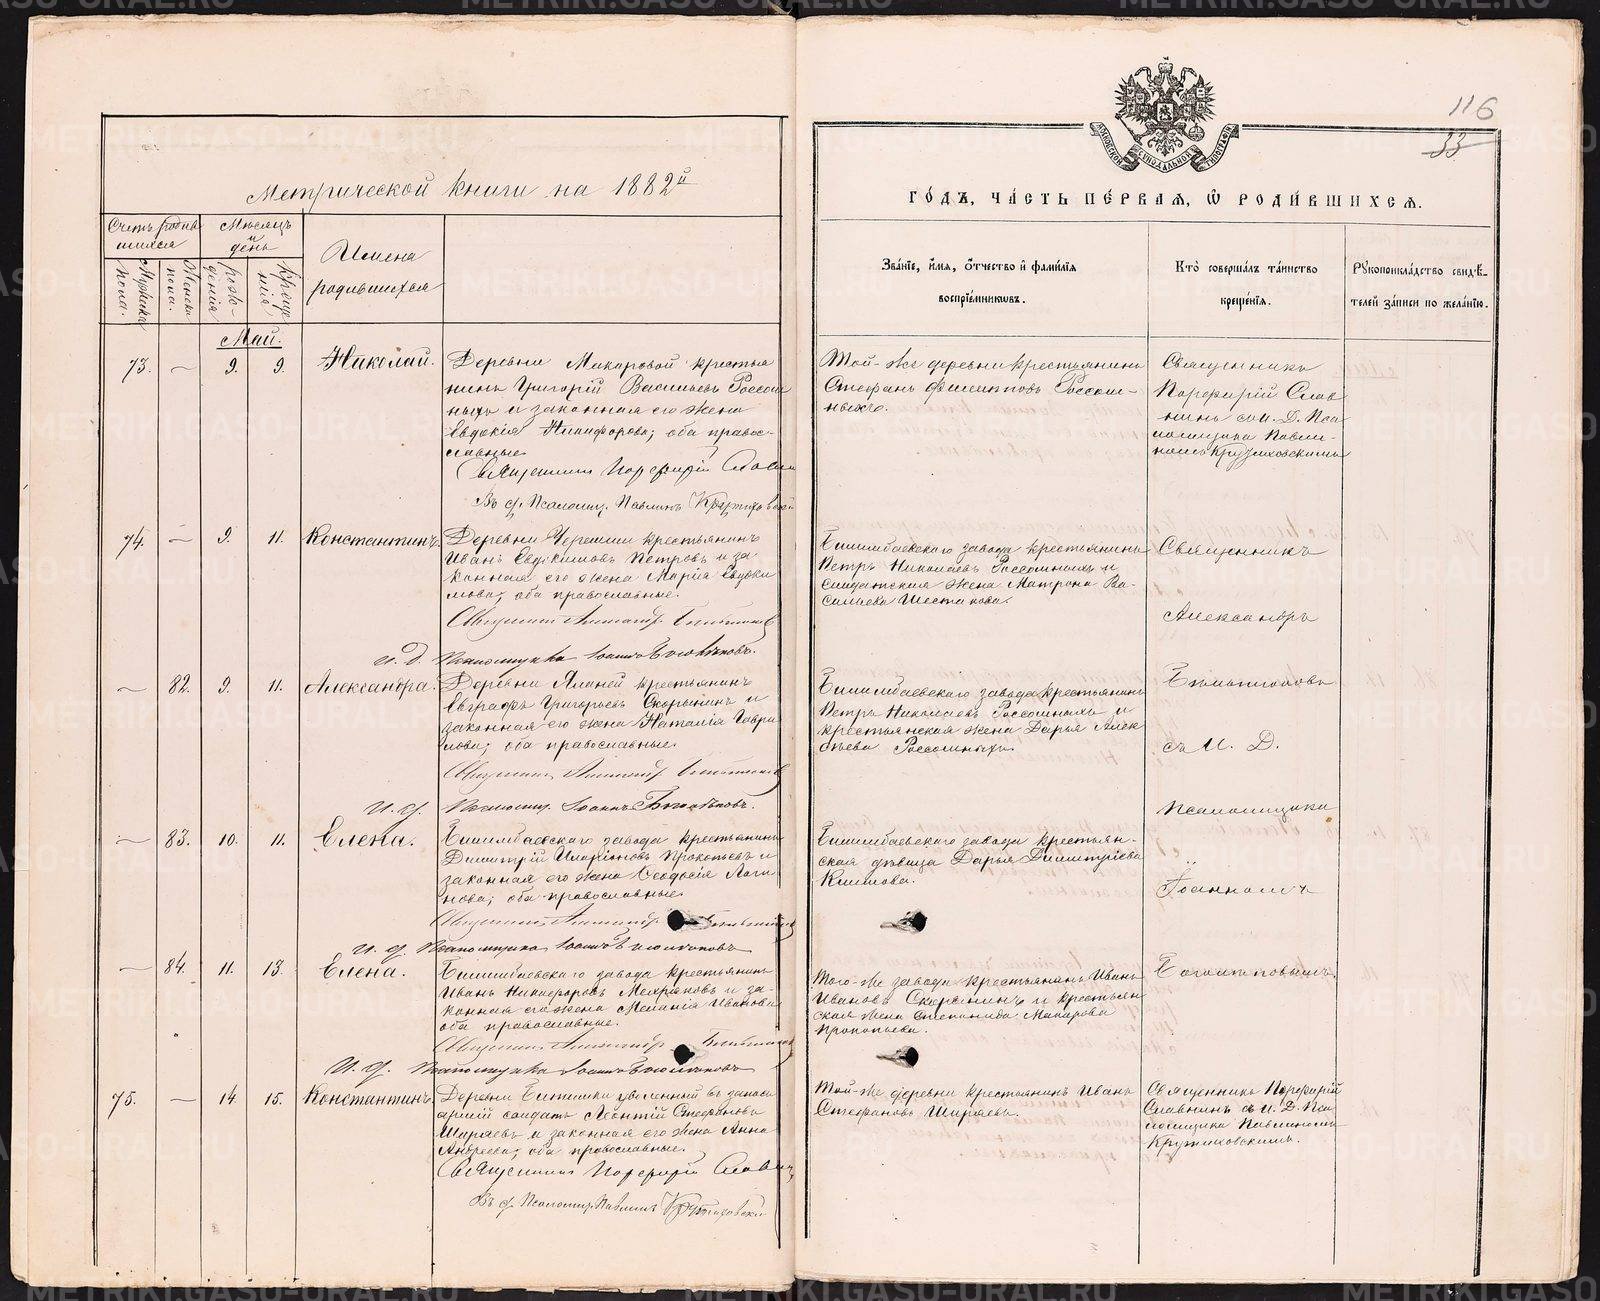 METRIKI.GASO-URAL.RU
116
33
Метрической книги на 1882й
ГО́ДЪ, ЧА́СТЬ ПЕ́РВАѦ, Ѿ РОДИ́ВШИХСѦ.
Счетъ родив
шихся
Мѣсяцъ
и
день
Имена
родившихся
Мужска
пола.
Женска
пола.
рож-
денія
креще
нія
Зва́нїе, и҆́мѧ, ѻ҆́тчество и҆ фами́лїѧ
воспрїе́мникѡвъ.
Кто̀ соверша́лъ та́инство
креще́нїѧ.
Рꙋкоприкла́дство свидѣ́-
телей за́писи по жела́нїю.
Май.
73. — 9. 9. Николай.
Деревни Макаровой крестья
нинъ Григорій Васильевъ Россош
ныхъ и законная его жена
Евдокія Никифорова; оба правос-
славные.
Священникъ Порфирій Славни
Въ д. Псаломщ. Павлинъ
Той-же деревни крестьянинъ
Стефанъ Филипповъ Россош-
ныхъ.
Священникъ
Порфирій Слав
нинъ съ и. Д. Пса
ломщика Павли-
номъ Кружиховскимъ
74. — 9. 11. Константинъ.
Деревни Черемши крестьянинъ
Иванъ Евдокимовъ Петровъ и за
конная его жена Марія Евдоки
мова; оба православные.
Священникъ Александръ
и. д. Псаломщика Іоаннъ
Билимбаевскаго завода крестьянинъ
Петръ Николаевъ Россошныхъ и
солдатская жена Матрона Ва-
сильева Шестакова.
Священникъ
Александръ
— 82. 9. 11. Александра.
Деревни Аланей крестьянинъ
Евграфъ Григорьевъ Скорынинъ и
законная его жена Наталія Гаври
лова; оба православные.
Священникъ Александръ
и. д. Псаломщ. Іоаннъ
Билимбаевскаго завода крестьянинъ
Петръ Николаевъ Россошныхъ и
крестьянская жена Дарья Алек
сѣева Россошныхъ.
съ И. Д.
Псаломщика
— 83. 10. 11. Елена.
Билимбаевскаго завода крестьянинъ
Димитрій Иларіоновъ Прокопьевъ и
законная его жена Ѳеодосія Логи
нова; оба православные.
Священникъ Александръ
и. д. Псаломщика Іоаннъ
Билимбаевскаго завода крестьян-
ская дѣвица Дарья Димитріева
Климова.
Іоанномъ
— 84. 11. 13. Елена.
Билимбаевскаго завода крестьянинъ
Иванъ Никифоровъ Мехряковъ и за-
конная его жена Меланія Иванова
оба православные.
Священникъ Александръ
И. д. Псаломщика Іоаннъ
Того-же завода крестьянинъ Иванъ
Ивановъ Скорынинъ и крестьян
ская жена Степанида Макарова
Прокопьева.
75. — 14. 15. Константинъ.
Деревни Битимки уволенный въ запасъ
арміи солдатъ Леонтій Стефановъ
Ширяевъ и законная его жена Анна
Андреева; оба православные.
Священникъ Порфирій Славни
Въ д. Псаломщ. Павлинъ
Той-же деревни крестьянинъ Иванъ
Стефановъ Ширяевъ.
Священникъ Порфирій
Славнинъ съ и. Д. Пса
ломщика Павлиномъ
Кружиховскимъ.